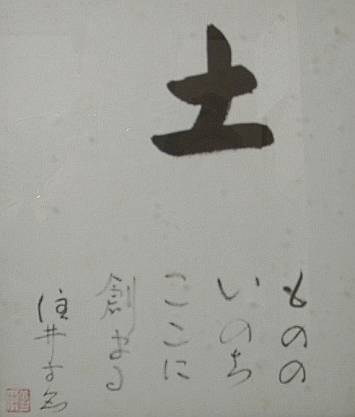 土
ものの
いのち
ここに
創まる
住井すゑ